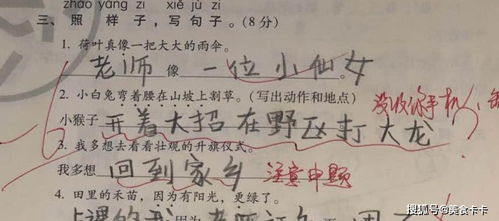 zhào yàng zi xiě jù zi
三、照样子，写句子。(8分)
1. 荷叶真像一把大大的雨伞。
老师像一位小仙女。
2. 小白兔弯着腰在山坡上割草。(写出动作和地点)
没收你手机，
小猴子开着大招在野区打大龙
3. 我多想去看看壮观的升旗仪式。
我多想回到家乡 注意审题
4. 田里的禾苗，因为有阳光，更绿了。
搜狐号@美食卡卡